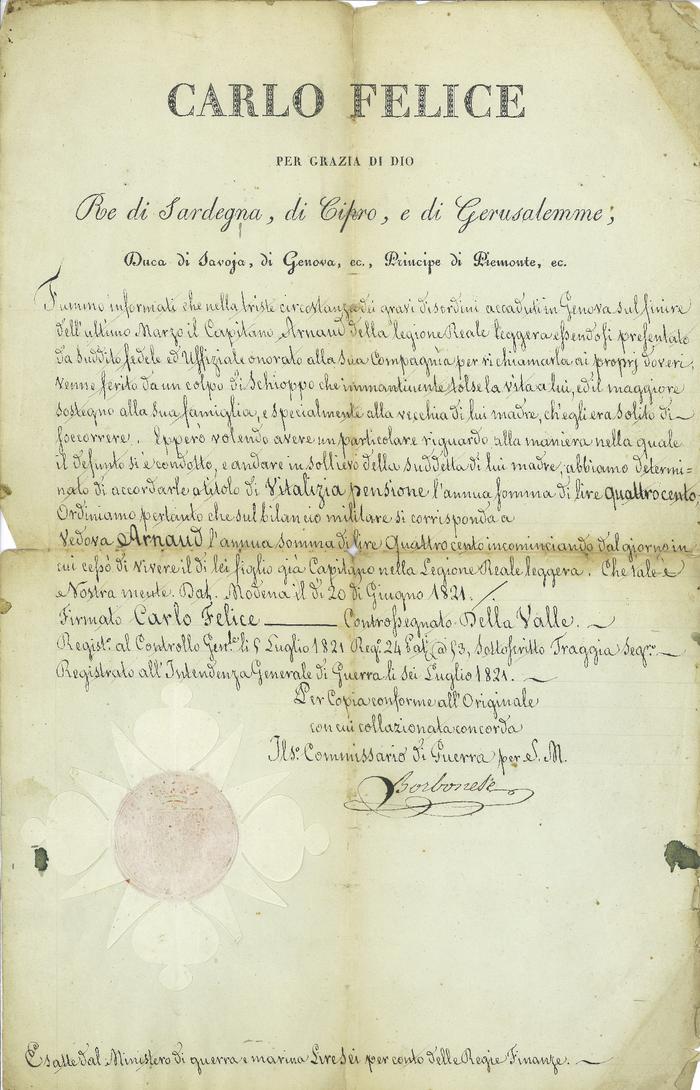 CARLO FELICE
PER GRAZIA DI DIO
Re di Sardegna, di Cipro, e di Gerusalemme;
Duca di Savoja, di Genova, ec., Principe di Piemonte, ec.
Fummo informati che nella triste circostanza dei gravi disordini accaduti in Genova sul finire
dell'ultimo Marzo il Capitano Arnaud della legione Reale leggera essendosi presentato
da Suddito fedele ed Uffiziale onorato alla sua Compagnia per richiamarla ai proprj doveri,
venne ferito da un colpo di Schioppo che immantinente tolse la vita a lui, ed il maggiore
sostegno alla sua famiglia, e specialmente alla vecchia di lui madre, ch'egli era solito di
soccorrere. Epperò volendo avere un particolare riguardo alla maniera nella quale
il defunto si è condotto, e andare in sollievo della suddetta di lui madre, abbiamo determi=
nato di accordarle a titolo di Vitalizia pensione l'annua somma di lire quattrocento.
Ordiniamo pertanto che sul bilancio militare si corrisponda a
Vedova Arnaud l'annua somma di lire Quattrocento incominciando dal giorno in
cui cessò di vivere il di lei figlio già Capitano nella Legione Reale leggera. Che tale è
e Nostra mente. Dat. Modena il dì 20 di Giugno 1821.
Firmato Carlo Felice — Controssegnato Della Valle.
Regist.º al Controllo Gen.le li 5 Luglio 1821 Reg.º 24 @ 53, Sottoscritto Traggia Seg.ro
Registrato all'Intendenza Generale di Guerra li sei Luglio 1821.
Per Copia conforme all'Originale
con cui collazionata concorda
Il s.º Commissario di Guerra per S. M.
Borbonese
Esatte dal Ministero di guerra e marina Lire sei per conto delle Regie Finanze.